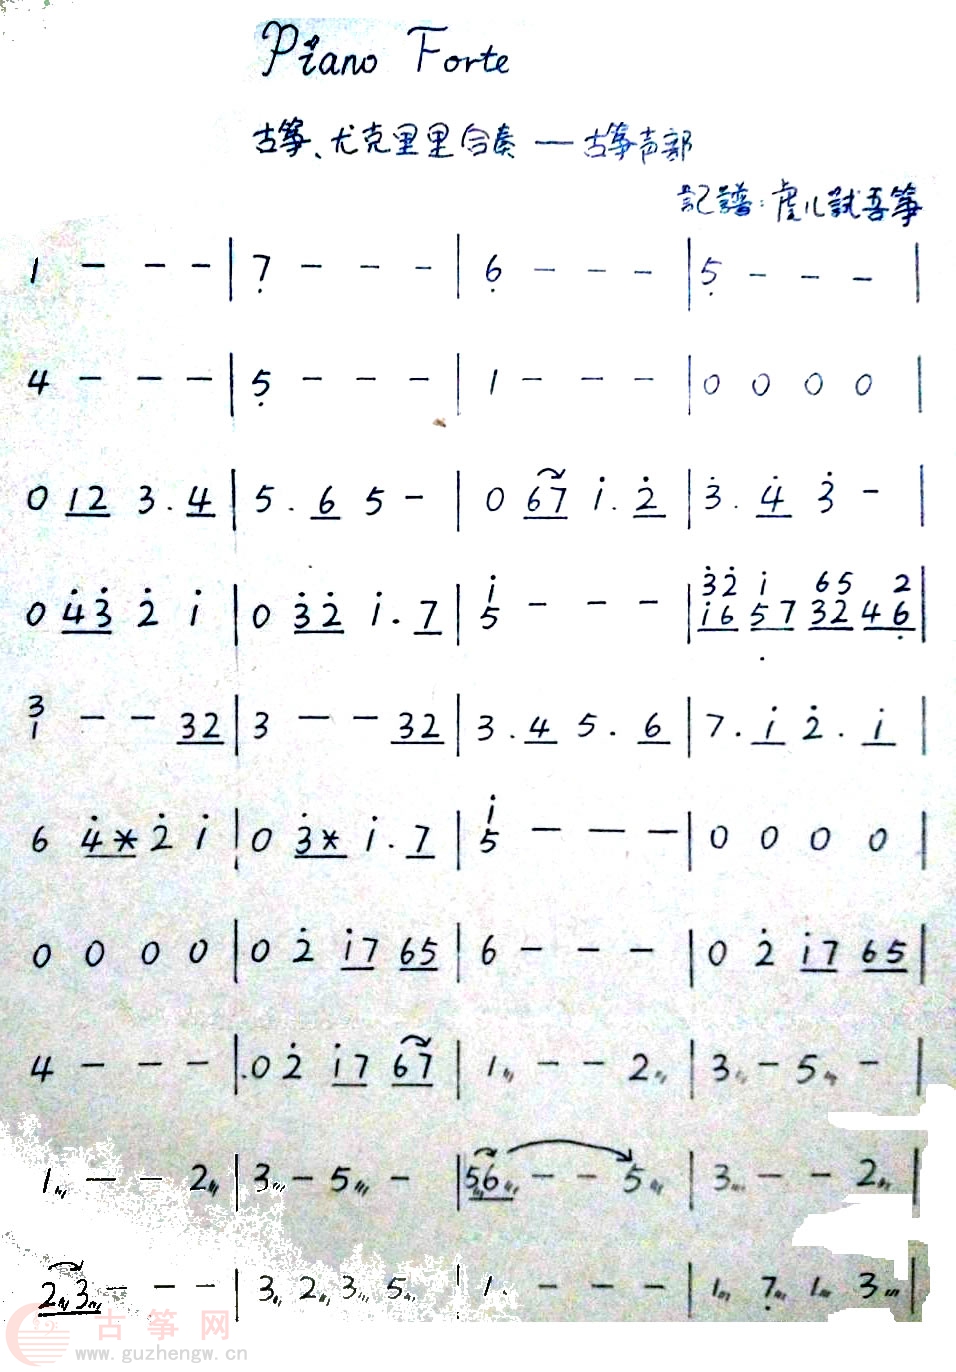 Piano Forte
古筝、尤克里里合奏 — 古筝声部
記譜:虎儿試吾筝
1 - - - | 7̣ - - - | 6̣ - - - | 5̣ - - - |
4 - - - | 5̣ - - - | 1 - - - | 0 0 0 0 |
0 12 3 . 4 | 5 . 6 5 - | 0 67 i . 2̇ | 3̇ . 4̇ 3̇ - |
0 4̇3̇ 2̇ i | 0 3̇2̇ i . 7 | i - - - | 3̇2̇ i 65 2
5 | i6 57 32 46̣ |
3 - - 32 | 3 - - 32 | 3 . 4 5 . 6 | 7 . i 2̇ . i |
1
6 4̇* 2̇ i | 0 3̇* i . 7 | i - - - | 0 0 0 0 |
5
0 0 0 0 | 0 2̇ i7 65 | 6 - - - | 0 2̇ i7 65 |
4 - - - | 0 2̇ i7 67 | 1 - - 2 | 3 - 5 - |
1 - - 2 | 3 - 5 - | 56 - - 5 | 3 - - 2 |
23 - - - | 3 2 3 5 | 1 - - - | 1 7̣ 1 3 |
古筝网
www.guzhengw.cn